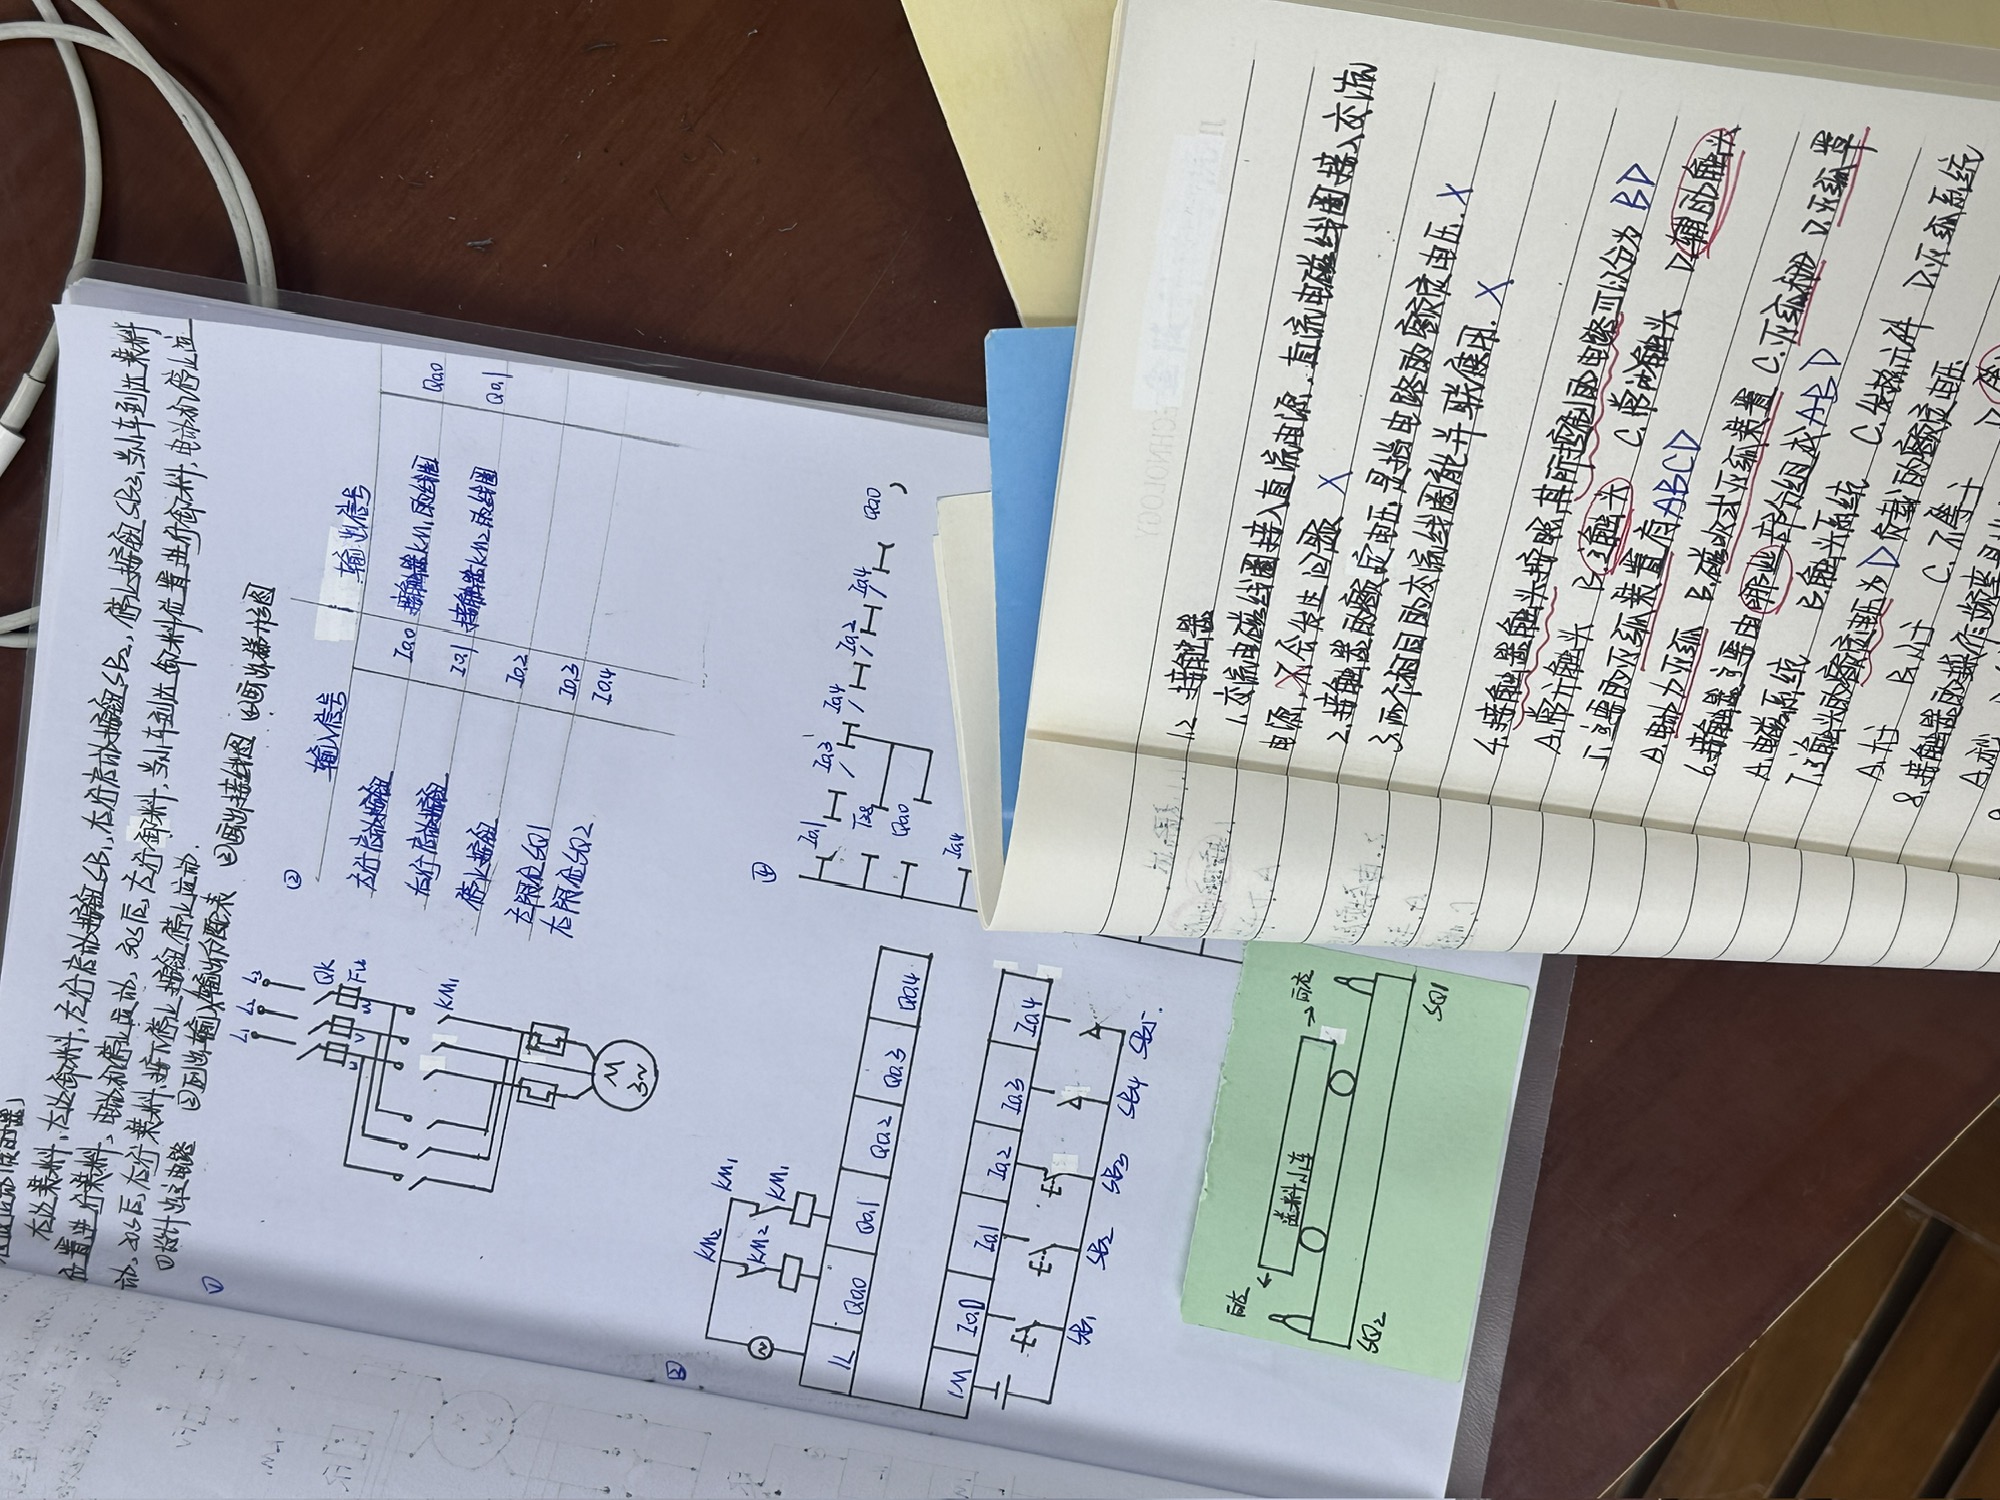 右边装料,左边卸料,左行启动按钮SB1,右行启动按钮SB2,停止按钮SB3,当小车到近装料
位置进行装料,电动机停止运动,30S后,左行卸料,当小车到近卸料位置进行卸料,电动机停止运
动,20S后,右行装料,按下停止按钮停止运动.
①设计出主电路 ②列出输入输出分配表 ③画出接线图 ④画出梯形图
①
L1 L2 L3
QK
FU
U V W
KM1
M
3~
②
输入信号 输出信号
左行启动按钮 I0.0 接触器KM1的线圈 Q0.0
右行启动按钮 I0.1 接触器KM2的线圈 Q0.1
停止按钮 I0.2
左限位SQ1 I0.3
右限位SQ2 I0.4
③
KM2 KM1
KM2 KM1
1L Q0.0 Q0.1 Q0.2 Q0.3 Q0.4
1M I0.0 I0.1 I0.2 I0.3 I0.4
SB1 SB2 SB3 SB4 SB5
④
I0.1 I0.3 I0.4 I0.2 I0.4 Q0.0
Q0.0
I0.4
向左 送料小车 向右
SQ2 SQ1
12.接触器
1.交流电磁线圈接入直流电源,直流电磁线圈接入交流
电源,不会发生问题 X
2.接触器的额定电压是指电路的额定电压.X
3.两个相同的交流线圈能并联使用.X
4.接触器触头按照其所控制的电路可以分为BD
A.常分触头 B.主触头 C.常闭触头 D.辅助触头
5.主要的灭弧装置有ABCD
A.电动力灭弧 B.磁吹式灭弧装置 C.灭弧栅 D.灭弧罩
6.接触器主要由哪些部分组成ABD
A.电磁系统 B.触头系统 C.发热元件 D.灭弧系统
7.主触头的额定电压为D负载的额定电压
A.大于 B.小于 C.不等于
8.接触器的操作频率是